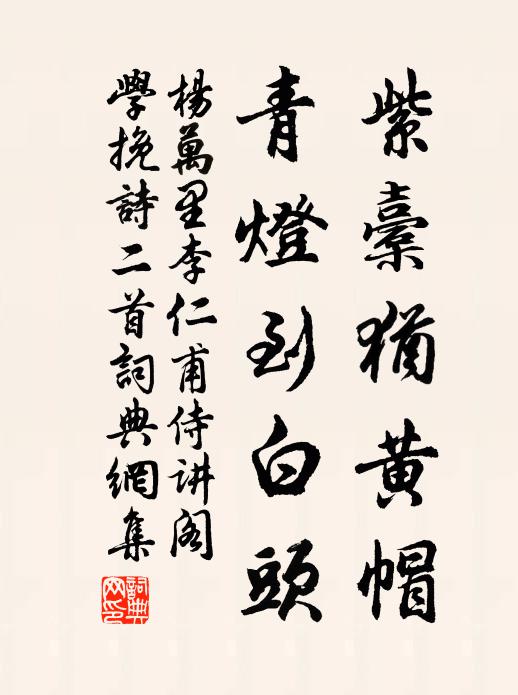 紫橐猶黄帽
青燈到白頭
楊萬里李仁甫侍讲阁
學挽詩二首詞典網集